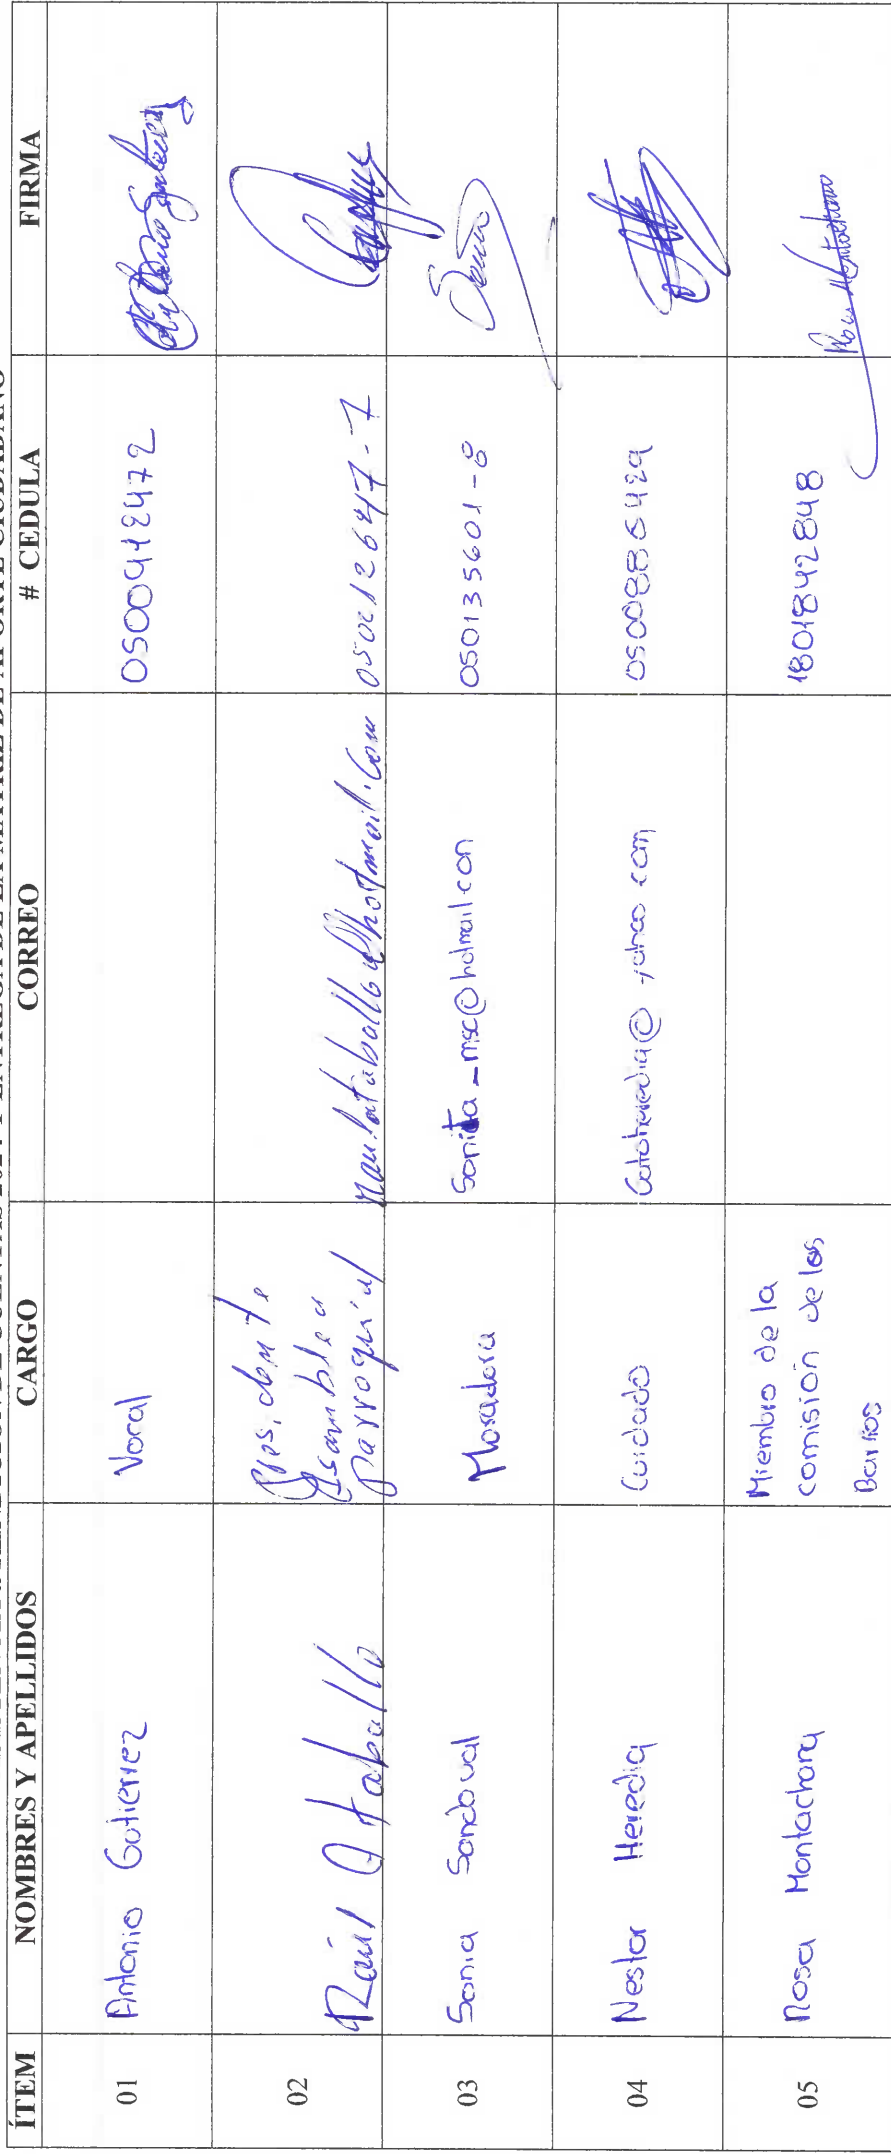 ÍTEM NOMBRES Y APELLIDOS CARGO CORREO # CEDULA FIRMA
01 Antonio Gutierrez Vocal 0500412472
02 Raúl Ataballo Presidente
Asamblea
Parroquial 050012647-7
03 Sonia Sandoval Moradora Sonita_msc@hotmail.con 050135601-8 Sonia
04 Nestor Heredia Cuidado 0500886429
05 Rosa Montachana Miembro de la
comisión de los
Barrios 1801842848 Rosa Montachana